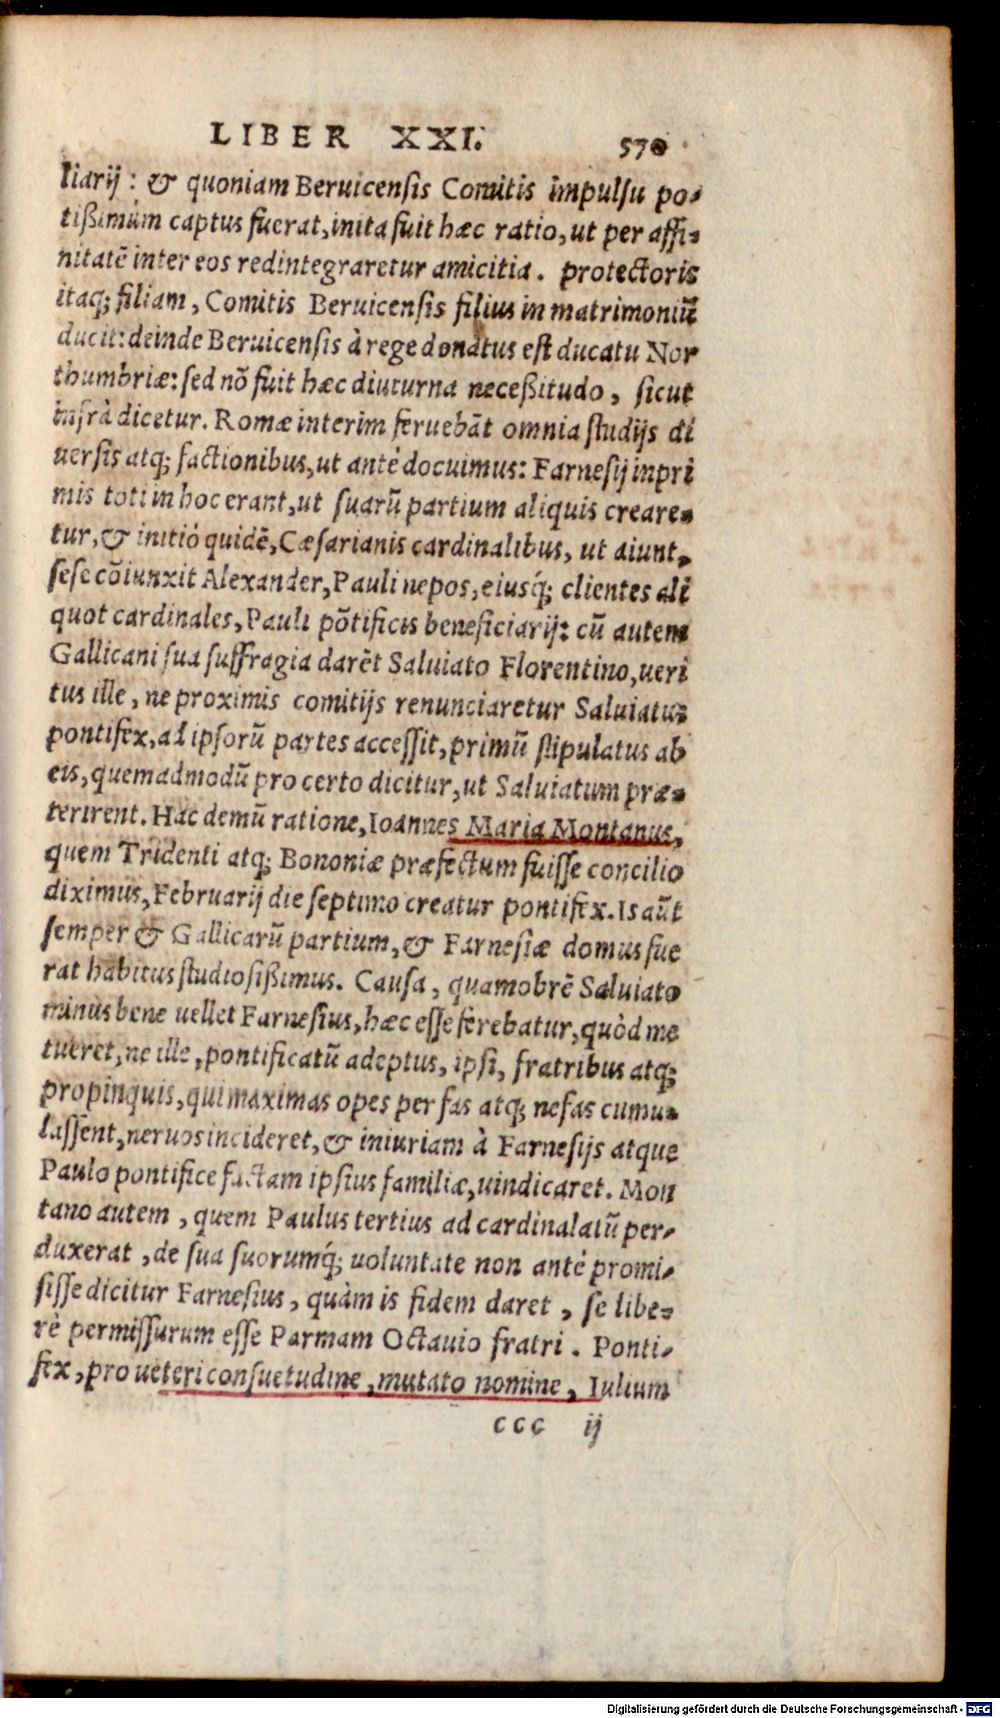 LIBER XXI. 570
liarij: & quoniam Beruicensis Comitis impulsu po-
tißimùm captus fuerat, inita fuit hæc ratio, ut per affi-
nitatē inter eos redintegraretur amicitia. protectoris
itaq; filiam, Comitis Beruicensis filius in matrimoniū
ducit: deinde Beruicensis à rege donatus est ducatu Nor
thumbriæ: sed nō fuit hæc diuturna neceßitudo, sicut
infrà dicetur. Romæ interim feruebāt omnia studijs di
uersis atq; factionibus, ut antè docuimus: Farnesij inpri
mis toti in hoc erant, ut suarū partium aliquis creare-
tur, & initiò quidē, Cæsarianis cardinalibus, ut aiunt,
sese cōiunxit Alexander, Pauli nepos, eiusq́; clientes ali
quot cardinales, Pauli pōtificis beneficiarij: cū autem
Gallicani sua suffragia darēt Saluiato Florentino, ueri
tus ille, ne proximis comitijs renunciaretur Saluiatus
pontifex, ad ipsorū partes accessit, primū stipulatus ab
eis, quemadmodū pro certo dicitur, ut Saluiatum præ-
terirent. Hac demū ratione, Ioannes Maria Montanus,
quem Tridenti atq; Bononiæ præfectum fuisse concilio
diximus, Februarij die septimo creatur pontifex. Is aūt
semper & Gallicarū partium, & Farnesiæ domus fue
rat habitus studiosißimus. Causa, quamobrē Saluiato
minus bene uellet Farnesius, hæc esse ferebatur, quòd me
tueret, ne ille, pontificatū adeptus, ipsi, fratribus atq;
propinquis, qui maximas opes per fas atq; nefas cumu-
lassent, neruos incideret, & iniuriam à Farnesijs atque
Paulo pontifice factam ipsius familiæ, uindicaret. Mon
tano autem, quem Paulus tertius ad cardinalatū per-
duxerat, de sua suorumq́; uoluntate non antè promi-
sisse dicitur Farnesius, quàm is fidem daret, se libe-
rè permissurum esse Parmam Octauio fratri. Ponti-
fex, pro ueteri consuetudine, mutato nomine, Iulium
ccc ij
Digitalisierung gefördert durch die Deutsche Forschungsgemeinschaft - DFG